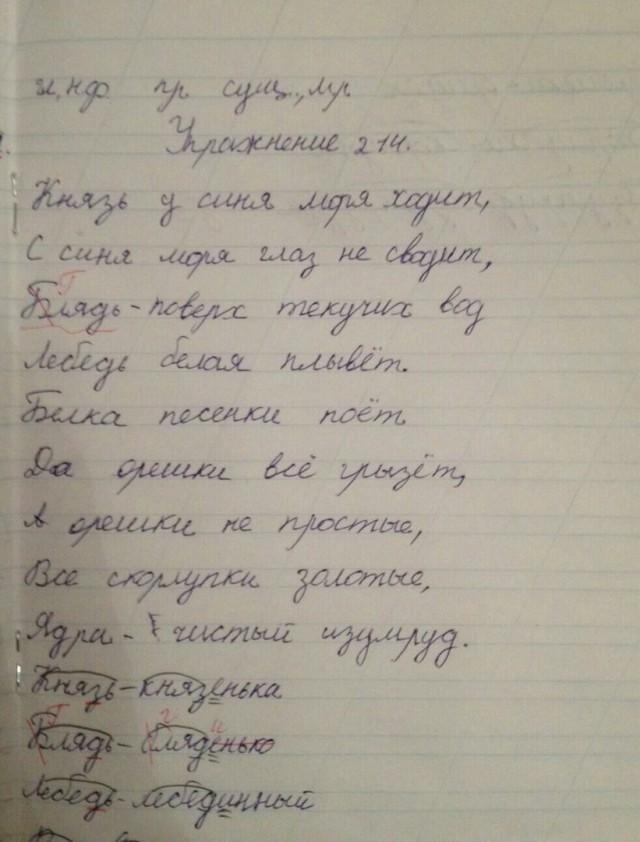 н.ф. пр. сущ., м.р.
Упражнение 214.
Князь у синя моря ходит,
С синя моря глаз не сводит,
Г
Блядь - поверх текучих вод
Лебедь белая плывёт.
Белка песенки поёт
Да орешки всё грызёт,
А орешки не простые,
Все скорлупки золотые,
Ядра - чистый изумруд.
Князь - князенька
Г г и
Блядь - бляденько
Лебедь - лебединный